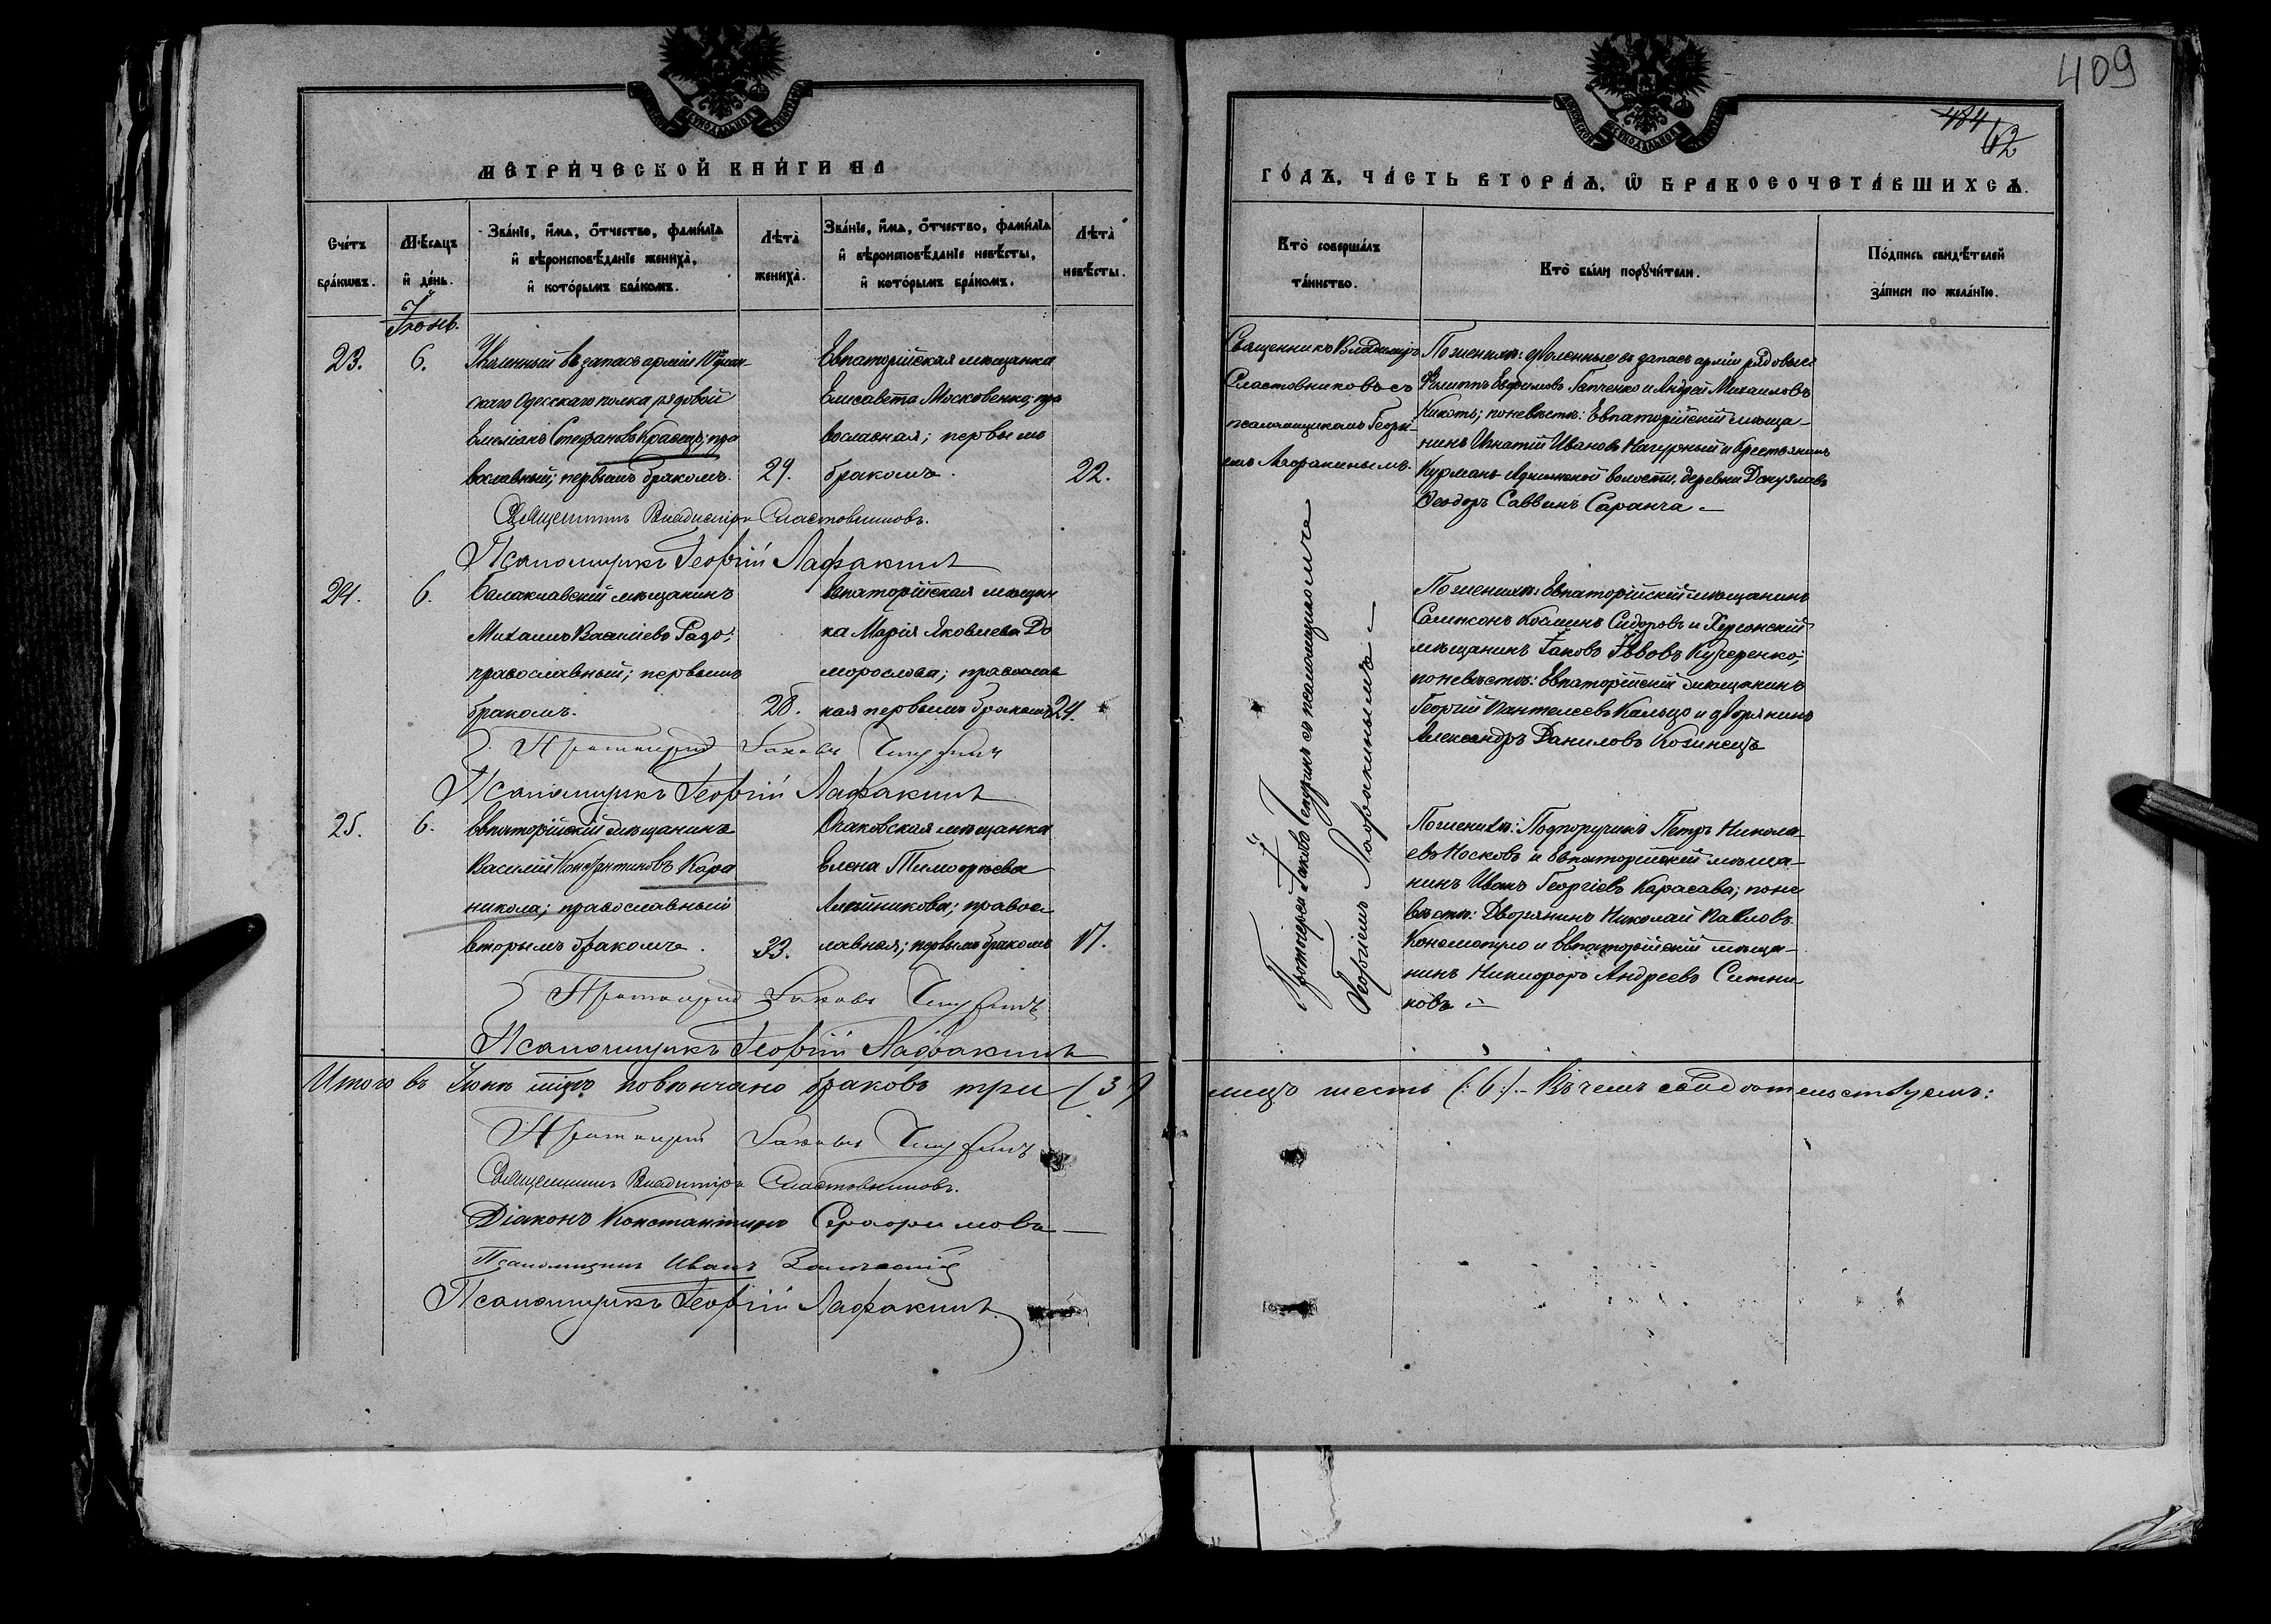 409
484
62
МЕТРИ́ЧЕСКОЙ КНИ́ГИ НА
ГО́ДЪ, ЧА́СТЬ ВТОРА́Ѧ, Ѽ БРАКОСОЧЕТА́ВШИХСѦ.
Сче́тъ бра́кѡвъ.
Мѣ́сѧцъ и҆ де́нь.
Зва́нїе, и҆́мѧ, ѻ҆́тчество, фами́лїѧ и҆ вѣроисповѣ́данїе жениха̀, и҆ кото́рымъ бра́комъ.
Лѣта̀ жениха̀.
Зва́нїе, и҆́мѧ, ѻ҆́тчество, фами́лїѧ и҆ вѣроисповѣ́данїе невѣ́сты, и҆ кото́рымъ бра́комъ.
Лѣта̀ невѣ́сты.
Кто̀ соверша́лъ та́инство.
Кто̀ бы́ли порꙋчи́тели.
По́дпись свидѣ́телей за́писи по жела́нїю.
Іюнь.
23.
6.
Уволенный въ запасъ арміи 10 улан-
скаго Одесскаго полка рядовой
Емеліанъ Стефановъ Кравецъ; пра
вославный; первымъ бракомъ.
29.
Евпаторійская мѣщанка
Елисавета Московенко; пра
вославная; первымъ
бракомъ.
22.
Священникъ Владиміръ
Сластовниковъ съ
псаломщикомъ Георгі-
емъ Лафакинымъ.
По женихѣ: уволенные въ запасъ арміи рядовые
Филиппъ Евфимовъ Гапченко и Андрей Михаиловъ
Кикоть; по невѣстѣ: Евпаторійскій мѣща-
нинъ Игнатій Ивановъ Нагурный и Крестьянинъ
Курманъ Аджинской волости, деревни Докузлавъ
Ѳеодоръ Саввинъ Саранча
Священникъ Владиміръ Сластовниковъ.
Псаломщикъ Георгій Лафакинъ
24.
6.
Балаклавскій мѣщанинъ
Михаилъ Василіевъ Радо;
православный; первымъ
бракомъ.
28.
Евпаторійская мѣщан
ка Марія Яковлева До
морослова; православ
ная первымъ бракомъ
24.
По женихѣ: Евпаторійскій мѣщанинъ
Сампсонъ Косминъ Сидоровъ и Херсонскій
мѣщанинъ Іаковъ Іввовъ Кучеренко;
по невѣстѣ: Евпаторійскій мѣщанинъ
Георгій Пантелеевъ Кальцо и дворянинъ
Александръ Даниловъ Козинецъ
Протоіерей Іаковъ Чепуринъ
Псаломщикъ Георгій Лафакинъ
25.
6.
Евпаторійскій мѣщанинъ
Василій Константиновъ Кара
никола; православный
вторымъ бракомъ.
33.
Очаковская мѣщанка
Елена Тимоѳеева
Алейникова; правос
лавная; первымъ бракомъ
17.
Протоіерей Іаковъ Чепуринъ съ псаломщикомъ
Георгіемъ Лафакинымъ
По женихѣ: Подпоручикъ Петръ Никола-
евъ Носковъ и Евпаторійскій мѣща-
нинъ Иванъ Георгіевъ Карасава; по не
вѣстѣ: Дворянинъ Николай Павловъ
Кономопуло и Евпаторійскій мѣща-
нинъ Никифоръ Андреевъ Ситни
ковъ
Протоіерей Іаковъ Чепуринъ
Псаломщикъ Георгій Лафакинъ
Итого въ Іюнѣ мѣсяцѣ повѣнчано браковъ три (3)
лицъ шесть (:6:). Въ чемъ свидѣтельствуемъ:
Протоіерей Іаковъ Чепуринъ
Священникъ Владиміръ Сластовниковъ.
Діаконъ Константинъ Серафимовъ
Псаломщикъ Иванъ
Псаломщикъ Георгій Лафакинъ